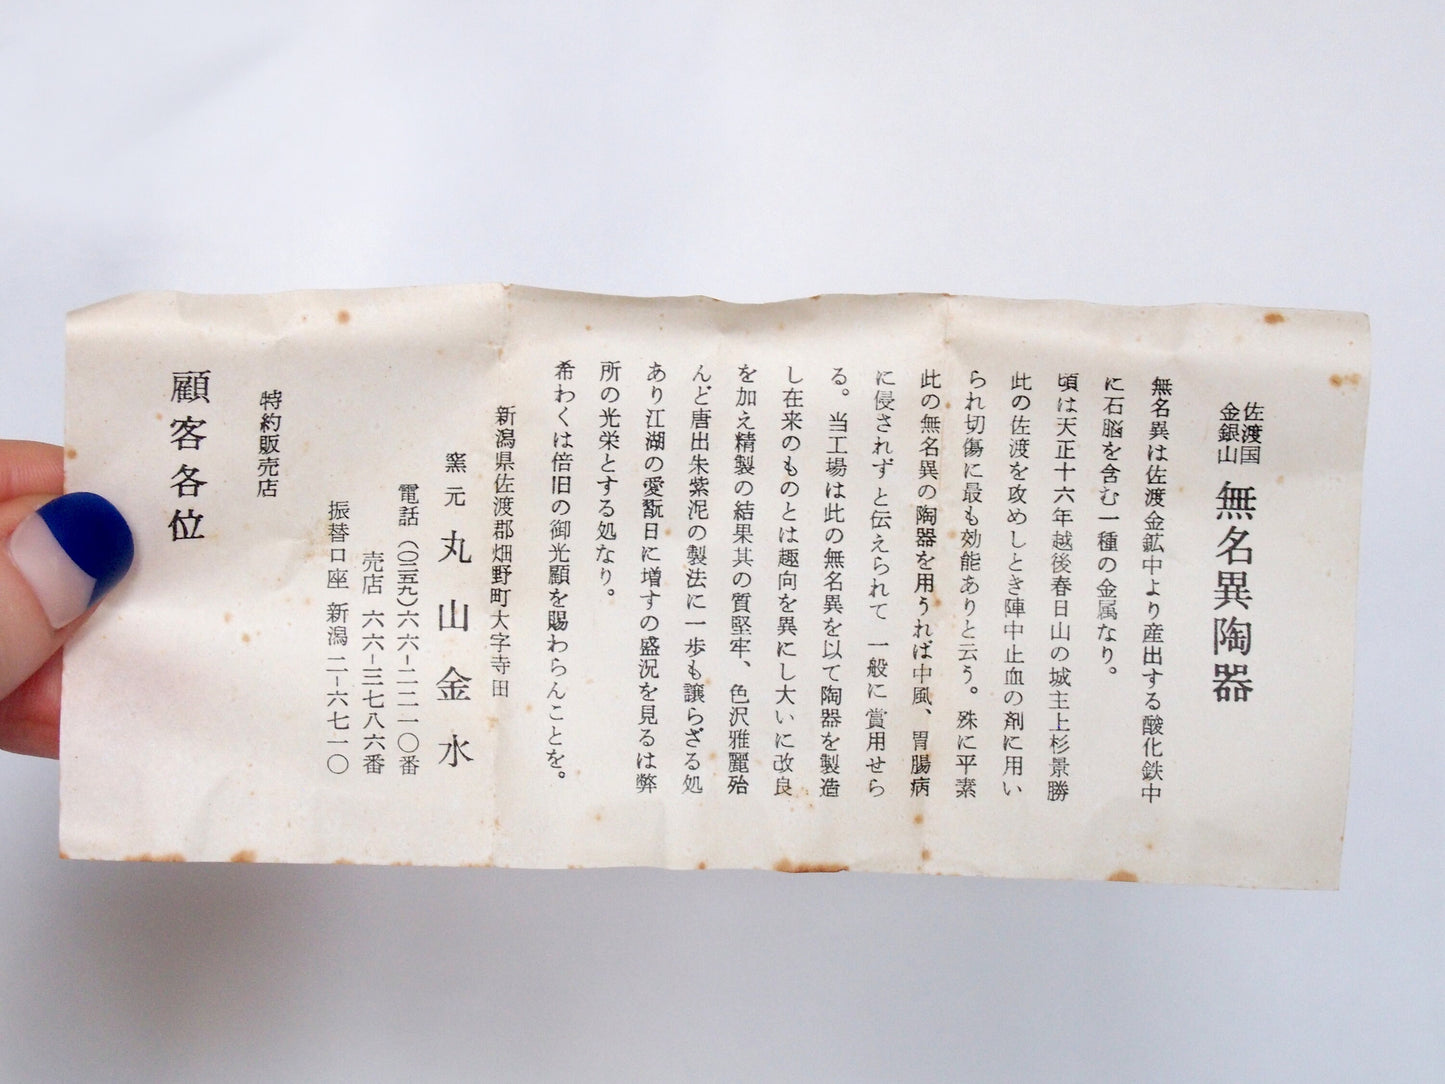 佐渡国
金銀山
無名異陶器
無名異は佐渡金鉱中より産出する酸化鉄中
に石脳を含む一種の金属なり。
頃は天正十六年越後春日山の城主上杉景勝
此の佐渡を攻めしとき陣中止血の剤に用い
られ切傷に最も効能ありと云う。殊に平素
此の無名異の陶器を用うれば中風、胃腸病
に侵されずと伝えられて一般に賞用せら
る。当工場は此の無名異を以て陶器を製造
し在来のものとは趣向を異にし大いに改良
を加え精製の結果其の質堅牢、色沢雅麗殆
んど唐出朱紫泥の製法に一歩も譲らざる処
あり江湖の愛翫日に増すの盛況を見るは弊
所の光栄とする処なり。
希わくは倍旧の御光顧を賜わらんことを。
新潟県佐渡郡畑野町大字寺田
窯元 丸山金水
電話(〇二五九)六六-二二一〇番
売店 六六-三七八六番
振替口座 新潟二-六七一〇
特約販売店
顧客各位